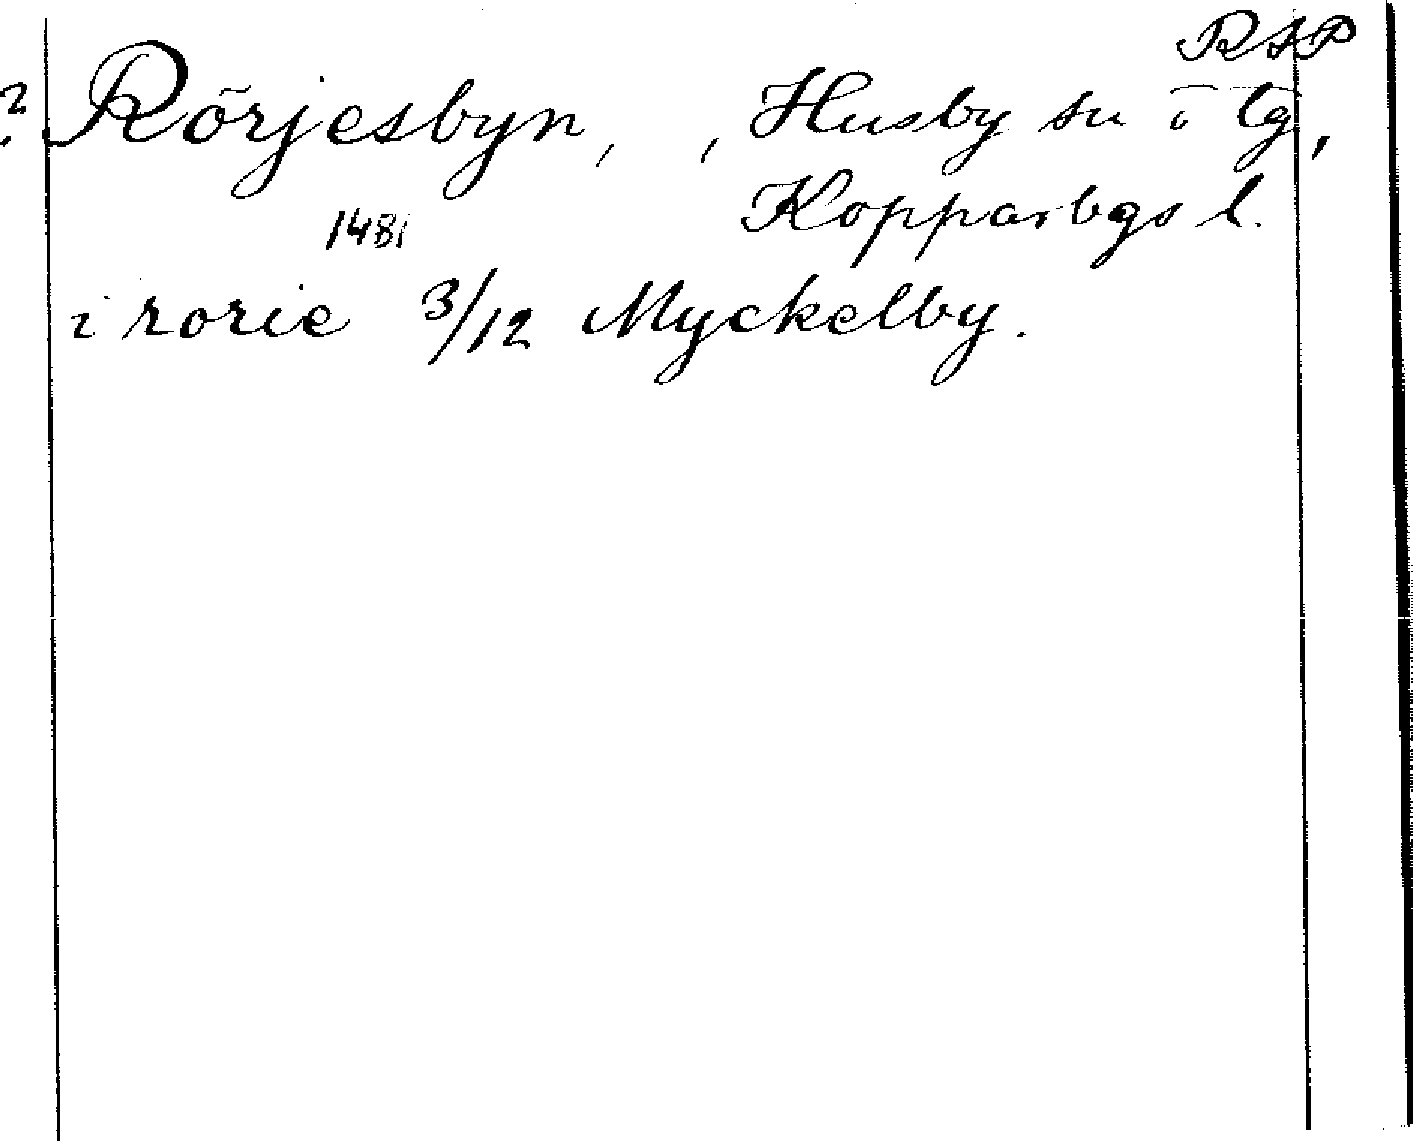 RAP
? Rörjesbyn, , Husby sn o lg,
Kopparbgs l.
1481
i rorie 3/12 Myckelby.